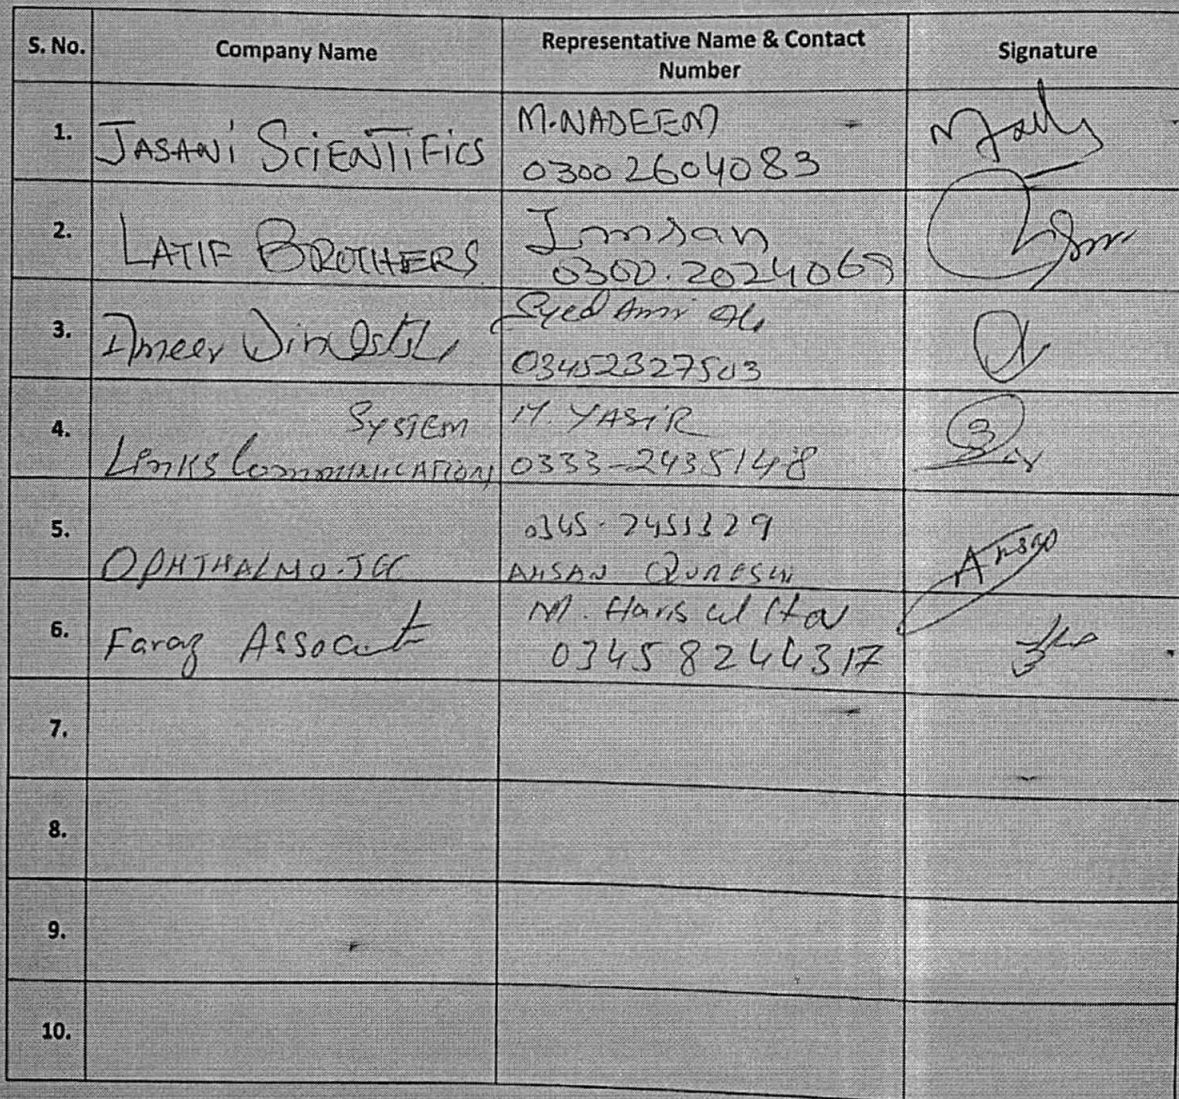 S. No.
Company Name
Representative Name & Contact
Number
Signature
1.
JASANi SCiENTiFiCS
M.NADEEM
0300 2604083
2.
LATIF BROTHERS
Imsan
0300.2024069
3.
Ameer
Syed Amir Ali
03452327503
4.
SYSTEM
LinKS COMMUNICATIONS
M. YASiR
0333-2435148
5.
OPHTHALMO.TEC
0345-2453329
AHSAN QURESHI
Ahsan
6.
Faraz Associate
M. Haris ul
0345 8244317
7.
8.
9.
10.